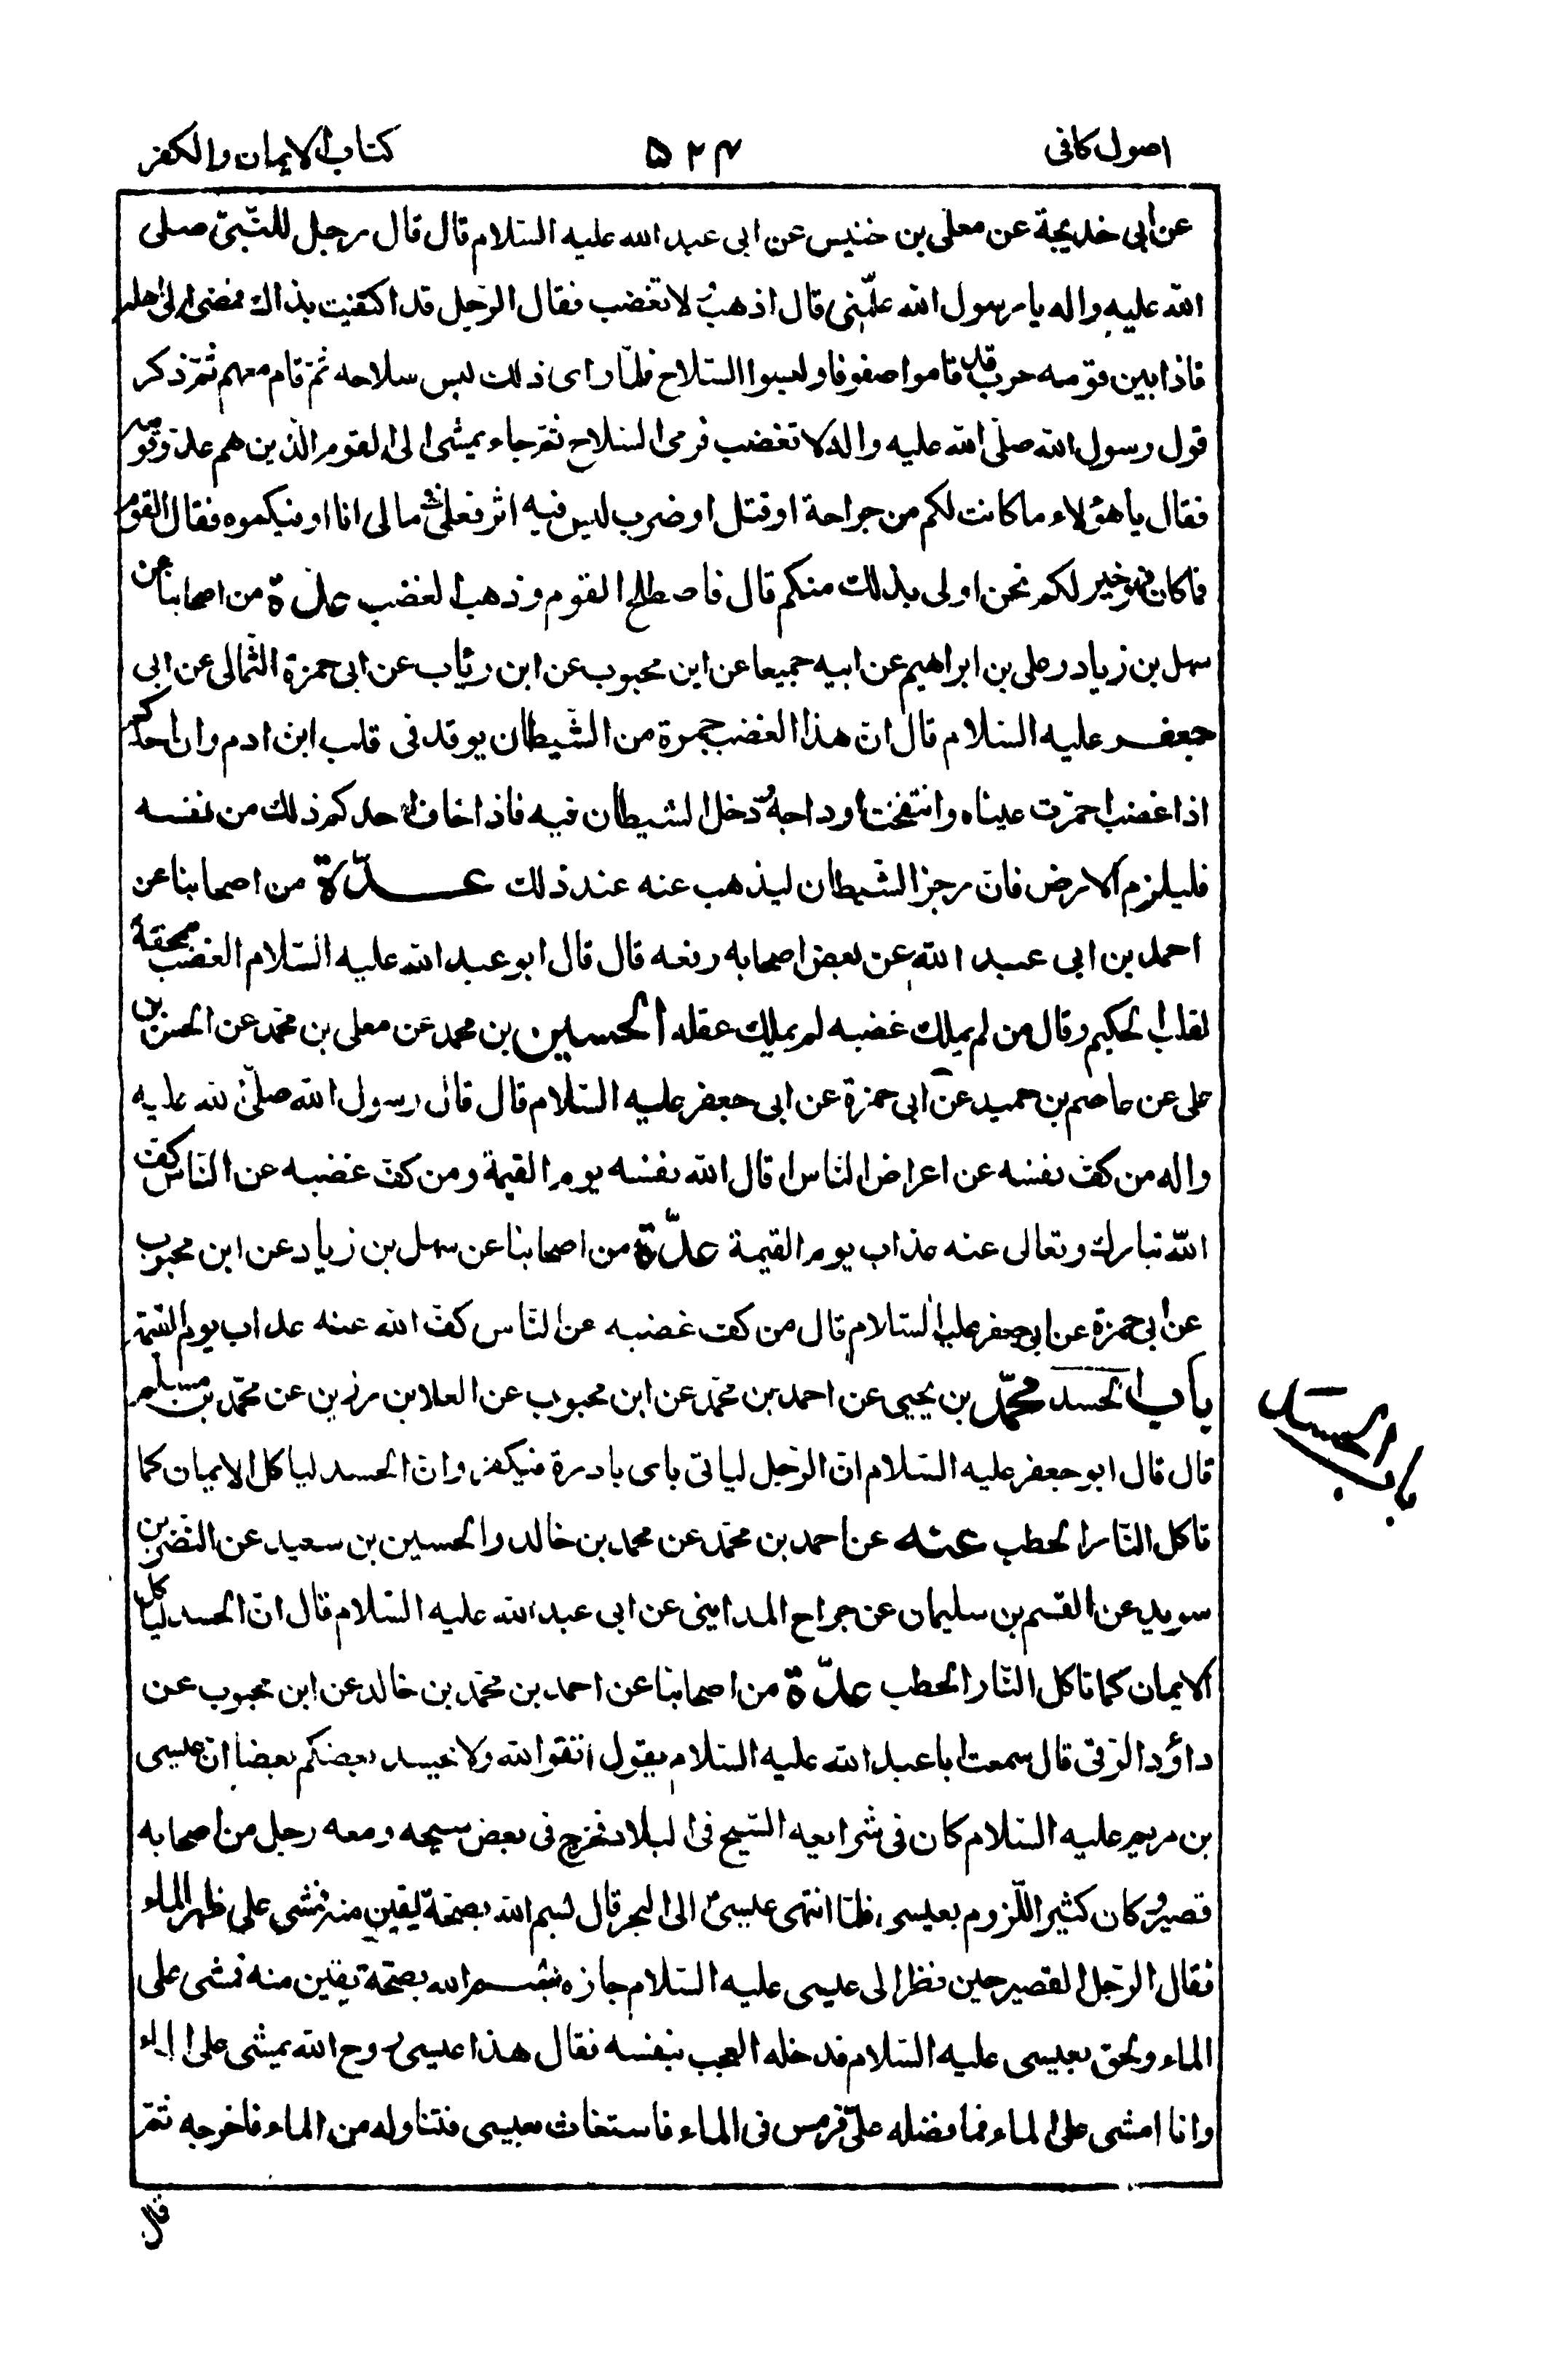 اصول كافى ۵۲۴ كتاب الايمان والكفر
عن ابى خديجة عن معلى بن خنيس عن ابى عبد الله عليه السّلام قال قال رجل للنّبىّ صلى
الله عليه واله يا رسول الله علّمنى قال اذهب ولا تغضب فقال الرّجل قد اكتفيت بذاك فمضى الى اهله
فاذا بين قومه حرب قد قاموا صفوفا ولبسوا السّلاح فلمّا راى ذلك لبس سلاحه ثمّ قام معهم ثمّ ذكر
قول رسول الله صلّى الله عليه واله لا تغضب فرمى السّلاح ثمّ جاء يمشى الى القوم الّذين هم عدوّ قومه
فقال يا هؤلاء ما كانت لكم من جراحة او قتل او ضرب ليس فيه اثر فعلىّ فى مالى انا اوفيكموه فقال القوم
فما كان فهو خير لكم نحن اولى بذلك منكم قال فاصطلح القوم وذهب الغضب عدّة من اصحابنا عن
سهل بن زياد وعلى بن ابراهيم عن ابيه جميعا عن ابن محبوب عن ابن رئاب عن ابى حمزة الثّمالى عن ابى
جعفر عليه السّلام قال انّ هذا الغضب جمرة من الشّيطان يوقد فى قلب ابن ادم وان احدكم
اذا غضب احمرّت عيناه وانتفخت اوداجه ودخل الشيطان فيه فاذا خاف احدكم ذلك من نفسه
فليلزم الارض فانّ رجز الشّيطان ليذهب عنه عند ذلك عدّة من اصحابنا عن
احمد بن ابى عبد الله عن بعض اصحابه رفعه قال قال ابو عبد الله عليه السّلام الغضب ممحقة
لقلب الحكيم وقال من لم يملك غضبه لم يملك عقله الحسين بن محمد عن معلى بن محمّد عن الحسن بن
على عن عاصم بن حميد عن ابى حمزة عن ابى جعفر عليه السّلام قال قال رسول الله صلّى الله عليه
واله من كفّ نفسه عن اعراض النّاس اقال الله نفسه يوم القيمة ومن كفّ غضبه عن النّاس كفّ
الله تبارك وتعالى عنه عذاب يوم القيمة عدّة من اصحابنا عن سهل بن زياد عن ابن محبوب
عن ابى حمزة عن ابى جعفر عليه السّلام قال من كفّ غضبه عن النّاس كفّ الله عنه عذاب يوم القيمة
باب الحسد محمّد بن يحيى عن احمد بن محمّد عن ابن محبوب عن العلا بن رزين عن محمّد بن مسلم
قال قال ابو جعفر عليه السّلام انّ الرّجل لياتى باى بادرة فيكفر وانّ الحسد لياكل الايمان كما
تاكل النّار الحطب عنه عن احمد بن محمّد عن محمد بن خالد والحسين بن سعيد عن النّضر بن
سويد عن القسم بن سليمان عن جراح المداينى عن ابى عبد الله عليه السّلام قال انّ الحسد لياكل
الايمان كما تاكل النّار الحطب عدّة من اصحابنا عن احمد بن محمّد بن خالد عن ابن محبوب عن
داؤد الرّقى قال سمعت ابا عبد الله عليه السّلام يقول اتّقوا الله ولا يحسد بعضكم بعضا انّ عيسى
بن مريم عليه السّلام كان فى شرايعه السّيح فى البلاد فخرج فى بعض سيحه ومعه رجل من اصحابه
قصير وكان كثير اللّزوم بعيسى فلمّا انتهى عيسى الى البحر قال بسم الله بصحّة يقين منه فمشى على ظهر الماء
فقال الرّجل القصير حين نظر الى عيسى عليه السّلام جازه بسم الله بصحّة يقين منه فمشى على
الماء ولحق بعيسى عليه السّلام فدخله العجب بنفسه فقال هذا عيسى روح الله يمشى على الماء
وانا امشى على الماء فما فضله علىّ فرمس فى الماء فاستغاث بعيسى فتناوله من الماء فاخرجه ثمّ
قال
باب الحسد